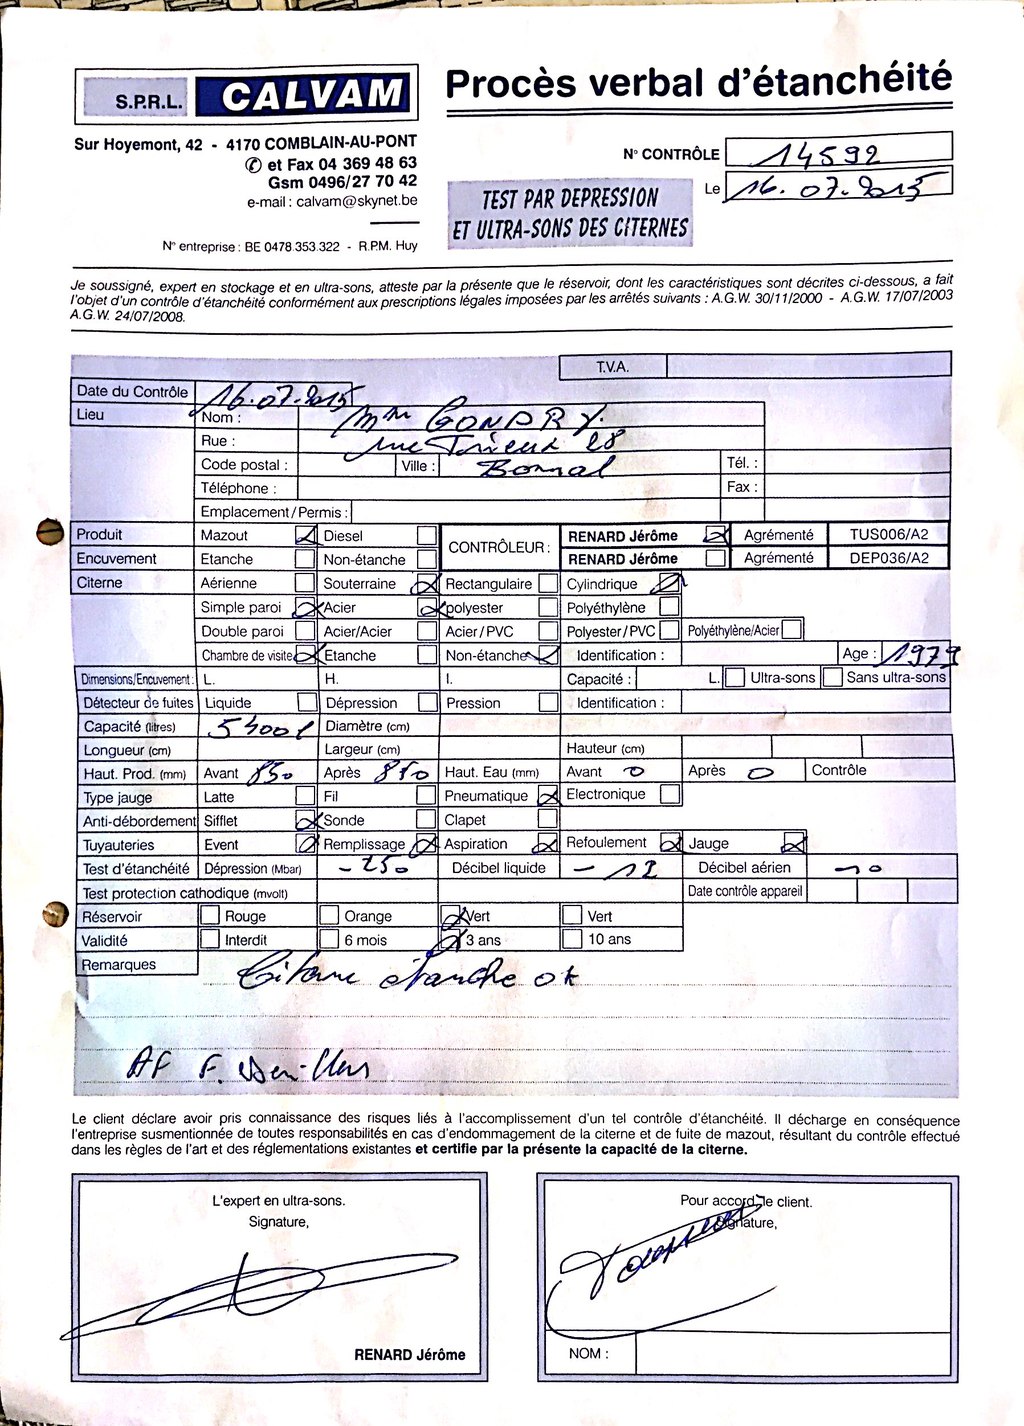 S.P.R.L. CALVAM
Procès verbal d'étanchéité
Sur Hoyemont, 42 - 4170 COMBLAIN-AU-PONT
✆ et Fax 04 369 48 63
Gsm 0496/27 70 42
e-mail : calvam@skynet.be
N° entreprise : BE 0478.353.322 - R.P.M. Huy
N° CONTRÔLE 14592
Le 16.07.2015
TEST PAR DEPRESSION
ET ULTRA-SONS DES CITERNES
Je soussigné, expert en stockage et en ultra-sons, atteste par la présente que le réservoir, dont les caractéristiques sont décrites ci-dessous, a fait
l'objet d'un contrôle d'étanchéité conformément aux prescriptions légales imposées par les arrêtés suivants : A.G.W. 30/11/2000 - A.G.W. 17/07/2003
A.G.W. 24/07/2008.
T.V.A.
Date du Contrôle 16.07.2015
Lieu Nom : Mme GONDRY
Rue : rue 28
Code postal : Ville : Bonnal
Tél. :
Téléphone : Fax :
Emplacement/Permis :
Produit Mazout Diesel CONTRÔLEUR : RENARD Jérôme Agrémenté TUS006/A2
Encuvement Etanche Non-étanche RENARD Jérôme Agrémenté DEP036/A2
Citerne Aérienne Souterraine Rectangulaire Cylindrique
Simple paroi Acier polyester Polyéthylène
Double paroi Acier/Acier Acier/PVC Polyester/PVC Polyéthylène/Acier
Chambre de visite Etanche Non-étanche Identification : Age : 1979
Dimensions/Encuvement : L. H. l. Capacité : L. Ultra-sons Sans ultra-sons
Détecteur de fuites Liquide Dépression Pression Identification :
Capacité (litres) 5400l Diamètre (cm)
Longueur (cm) Largeur (cm) Hauteur (cm)
Haut. Prod. (mm) Avant 850 Après 850 Haut. Eau (mm) Avant 0 Après 0 Contrôle
Type jauge Latte Fil Pneumatique Electronique
Anti-débordement Sifflet Sonde Clapet
Tuyauteries Event Remplissage Aspiration Refoulement Jauge
Test d'étanchéité Dépression (Mbar) -250 Décibel liquide -12 Décibel aérien -10
Test protection cathodique (mvolt) Date contrôle appareil
Réservoir Rouge Orange Vert Vert
Validité Interdit 6 mois 3 ans 10 ans
Remarques Citerne étanche ok
AF F.
Le client déclare avoir pris connaissance des risques liés à l'accomplissement d'un tel contrôle d'étanchéité. Il décharge en conséquence
l'entreprise susmentionnée de toutes responsabilités en cas d'endommagement de la citerne et de fuite de mazout, résultant du contrôle effectué
dans les règles de l'art et des réglementations existantes et certifie par la présente la capacité de la citerne.
L'expert en ultra-sons.
Signature,
RENARD Jérôme
Pour accord, le client.
Signature,
NOM :